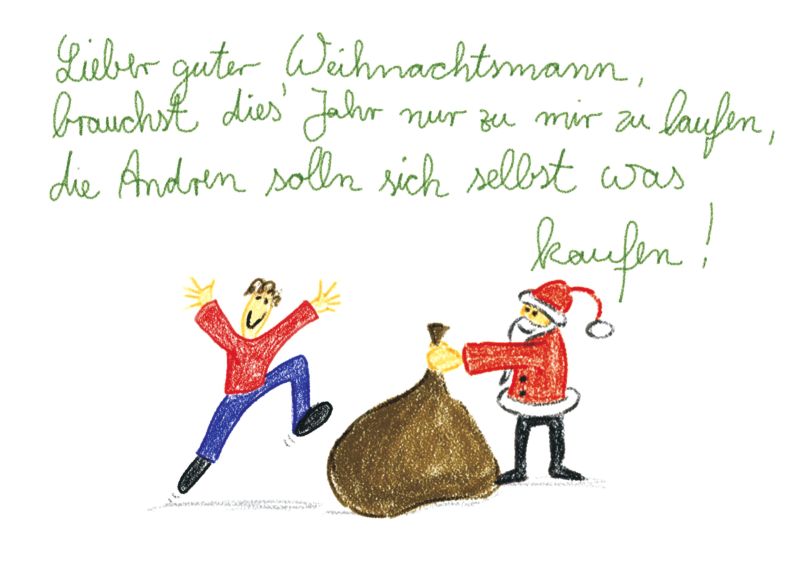 Lieber guter Weihnachtsmann,
brauchst dies' Jahr nur zu mir zu laufen,
die Andren solln sich selbst was
kaufen!